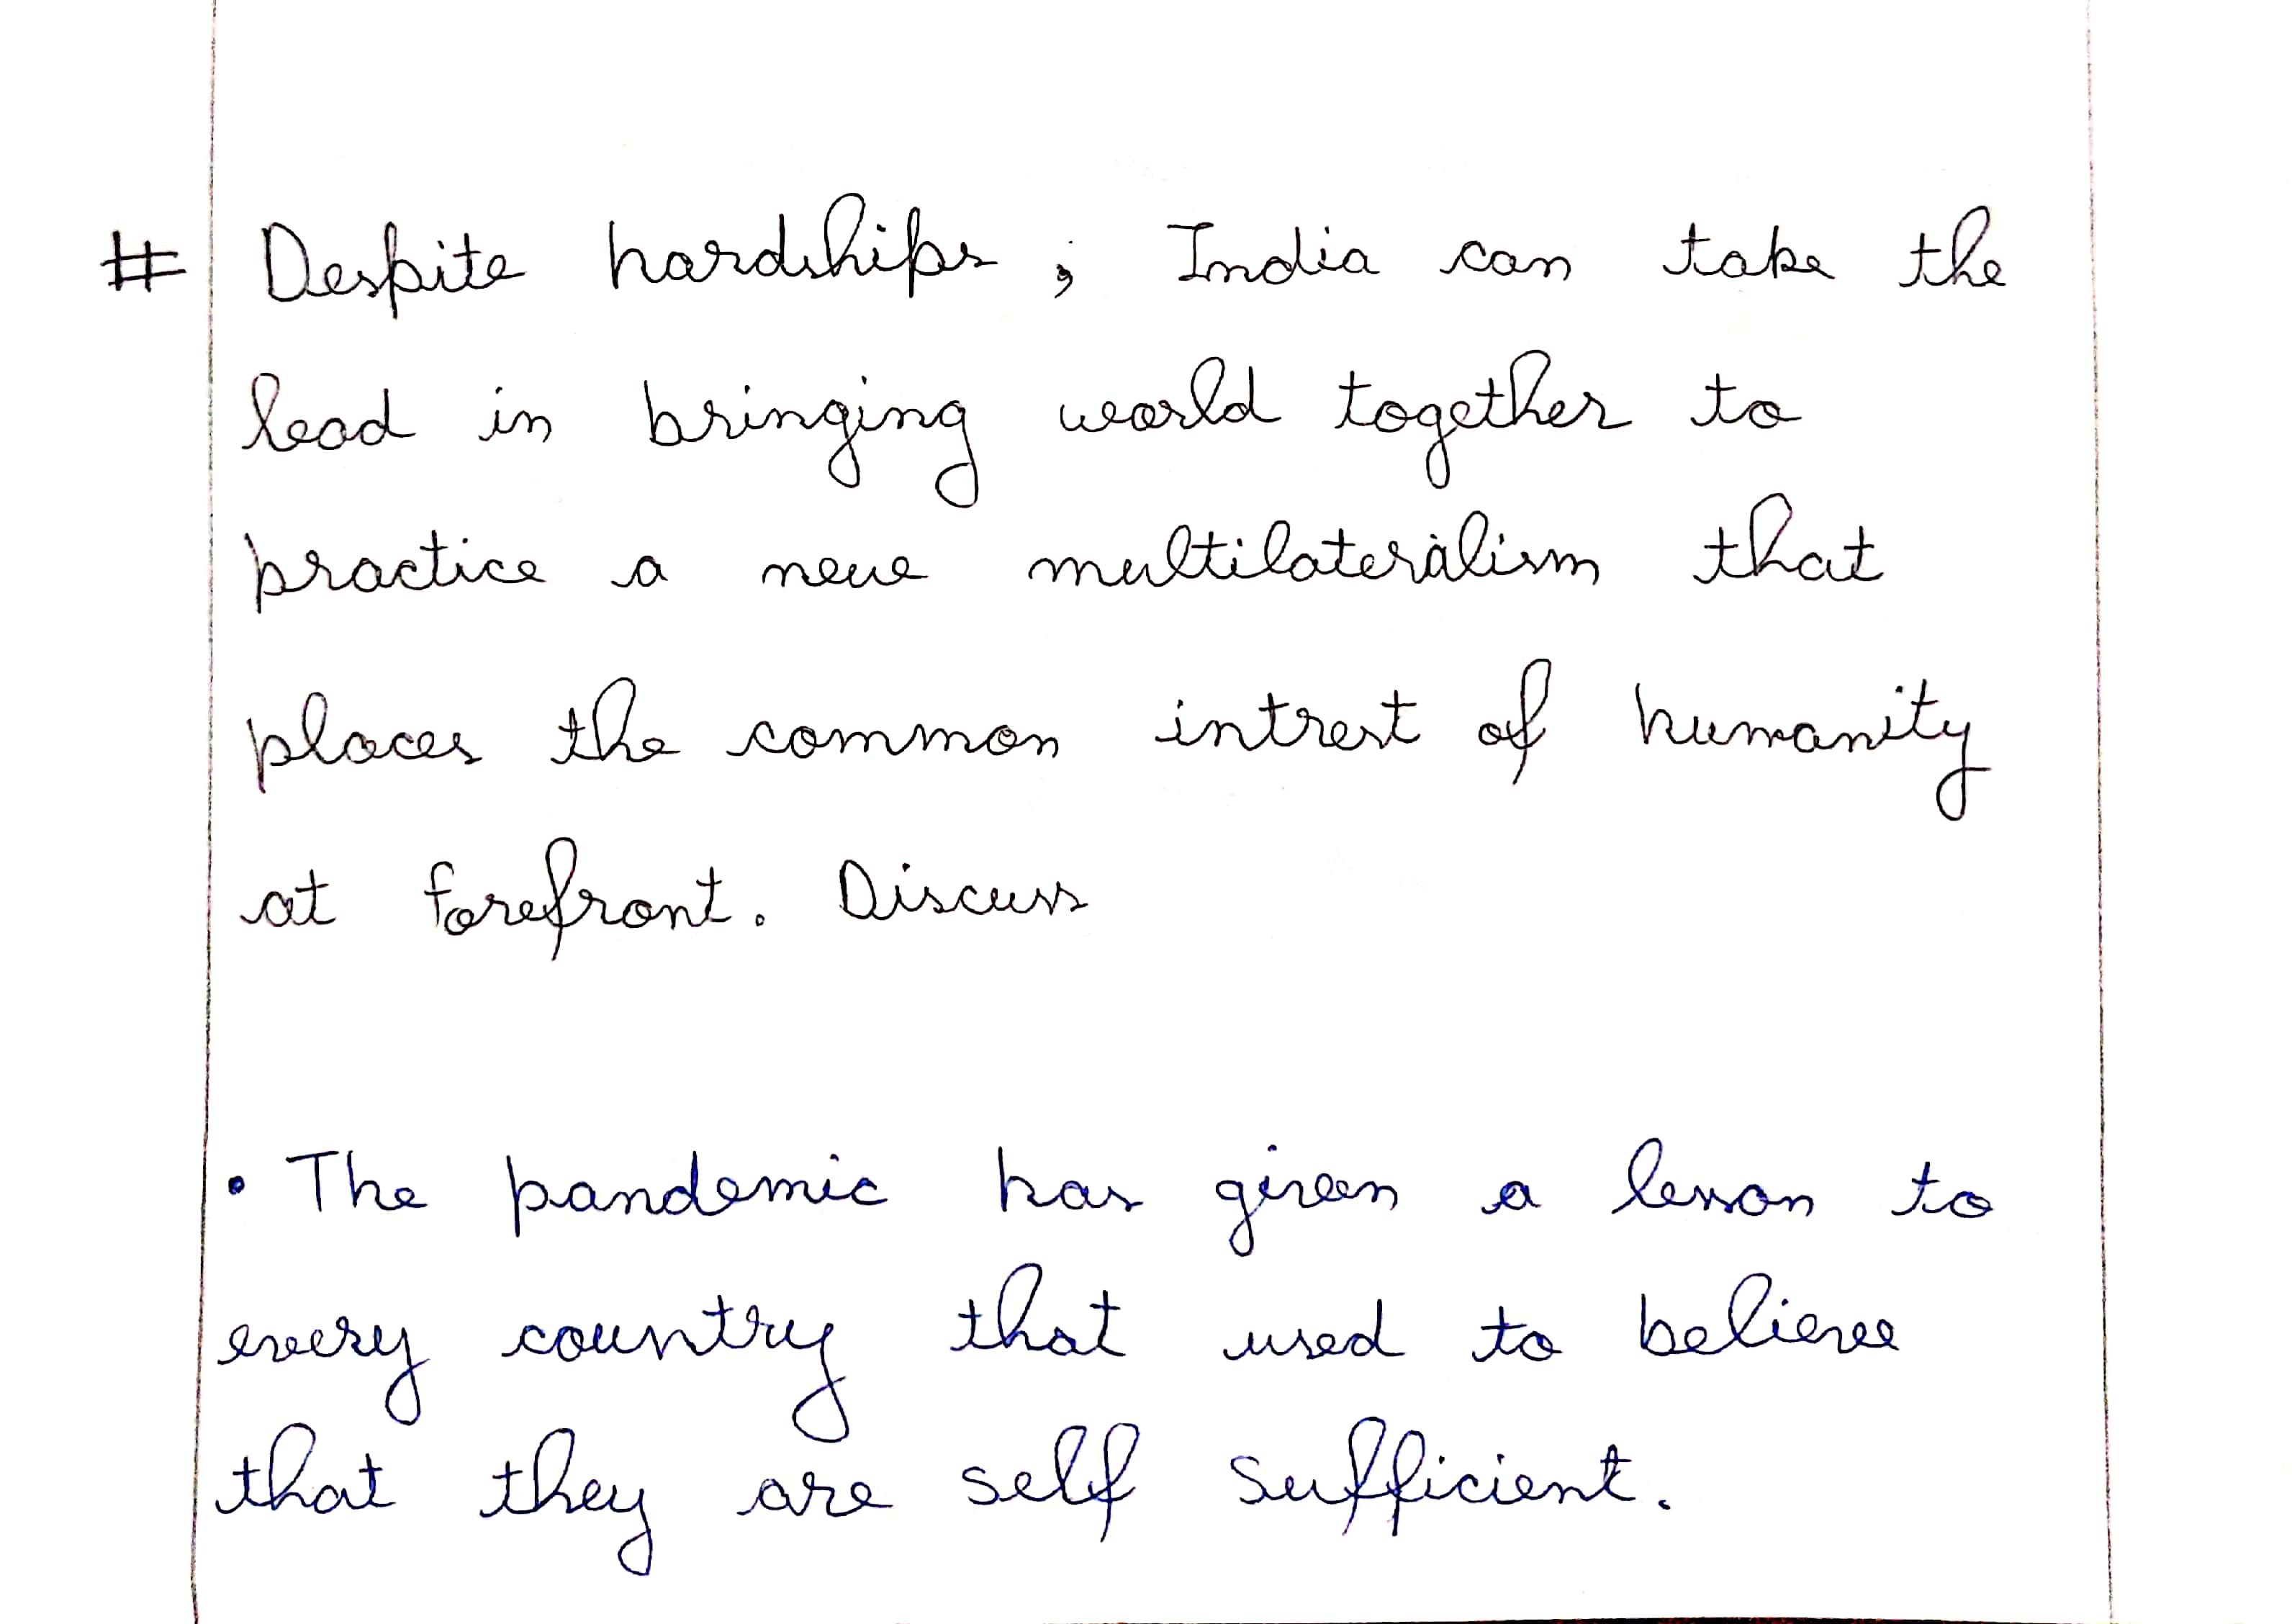 # Despite hardships ; India can take the
lead in bringing world together to
practice a new multilateralism that
places the common intrest of humanity
at forefront. Discuss
• The pandemic has given a lesson to
every country that used to believe
that they are self sufficient.